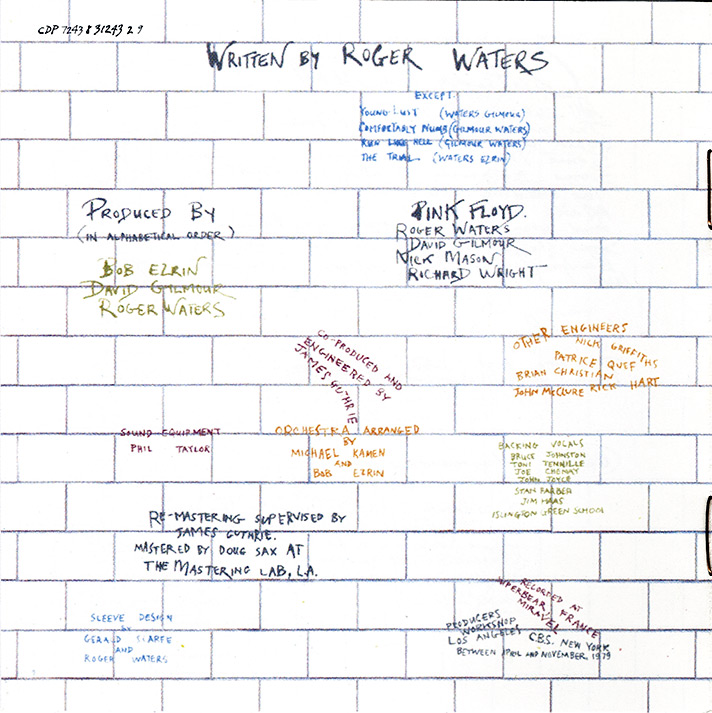 CDP 7243 8 31243 2 9
WRITTEN BY ROGER WATERS
EXCEPT.
YOUNG LUST (WATERS GILMOUR)
COMFORTABLY NUMB (GILMOUR WATERS)
RUN LIKE HELL (GILMOUR WATERS)
THE TRIAL (WATERS EZRIN)
PRODUCED BY
(IN ALPHABETICAL ORDER)
BOB EZRIN
DAVID GILMOUR
ROGER WATERS
PINK FLOYD.
ROGER WATERS
DAVID GILMOUR
NICK MASON
RICHARD WRIGHT
CO-PRODUCED AND
ENGINEERED BY
JAMES GUTHRIE
OTHER ENGINEERS
NICK GRIFFITHS
PATRICE QUEF
BRIAN CHRISTIAN
RICK HART
JOHN McCLURE
SOUND EQUIPMENT
PHIL TAYLOR
ORCHESTRA ARRANGED
BY
MICHAEL KAMEN
AND
BOB EZRIN
BACKING VOCALS
BRUCE JOHNSTON
TONI TENNILLE
JOE CHEMAY
JOHN JOYCE
STAN FARBER
JIM HAAS
ISLINGTON GREEN SCHOOL
RE-MASTERING SUPERVISED BY
JAMES GUTHRIE.
MASTERED BY DOUG SAX AT
THE MASTERING LAB, L.A.
SLEEVE DESIGN
BY
GERALD SCARFE
AND
ROGER WATERS
RECORDED AT
SUPERBEAR, FRANCE
MIRAVEL
PRODUCERS
WORKSHOP
LOS ANGELES C.B.S. NEW YORK
BETWEEN APRIL AND NOVEMBER 1979